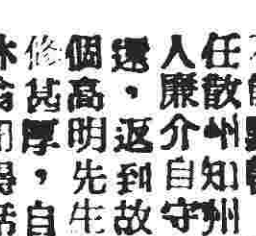 任散州知州
人廉介自守
還，返到故
個高明先生
修甚厚，自